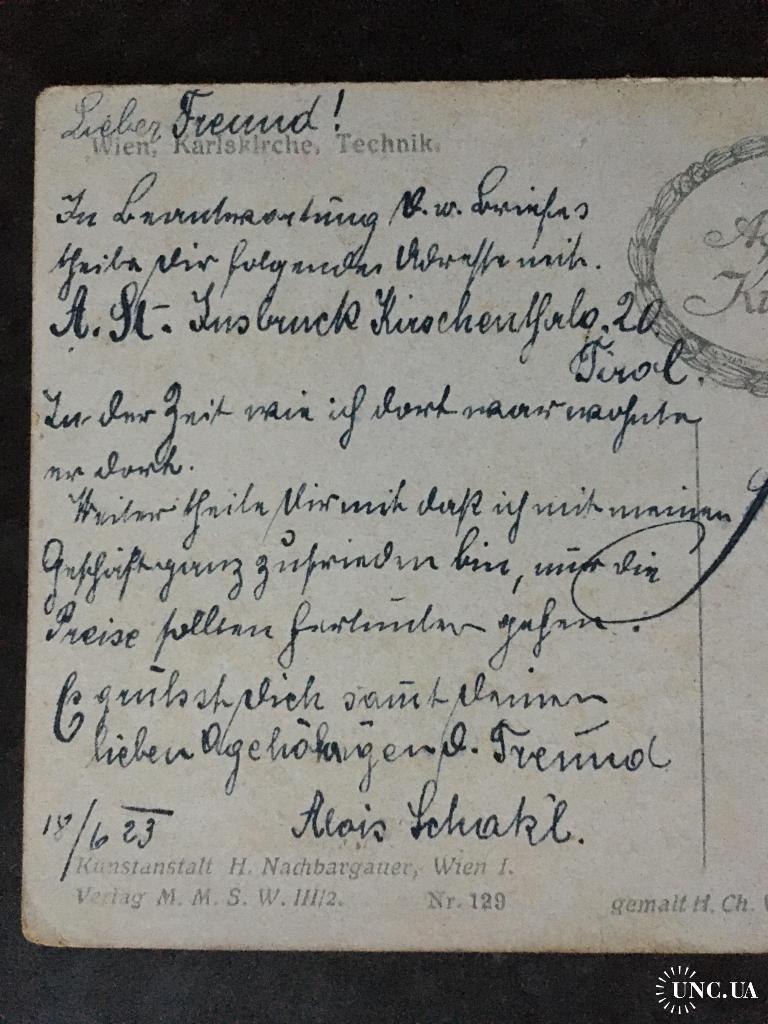 Lieber Freund!
Wien, Karlskirche, Technik.
In Beantwortung d. w. Briefes
theile dir folgende Adresse mit.
A. St. Insbruck Kirschenthalg. 20
Tirol.
In der Zeit wie ich dort war wohnte
er dort.
Weiter theile Dir mit daß ich mit meinen
Geschäft ganz zufrieden bin, nur die
Preise sollten herunter gehen.
Es grüsst Dich samt deinen
lieben Agehörigen d. Freund
18/6 23
Alois Schak'l.
Kunstanstalt H. Nachbargauer, Wien I.
Verlag M. M. S. W. III/2.
Nr. 129
gemalt H. Ch.
UNC.UA